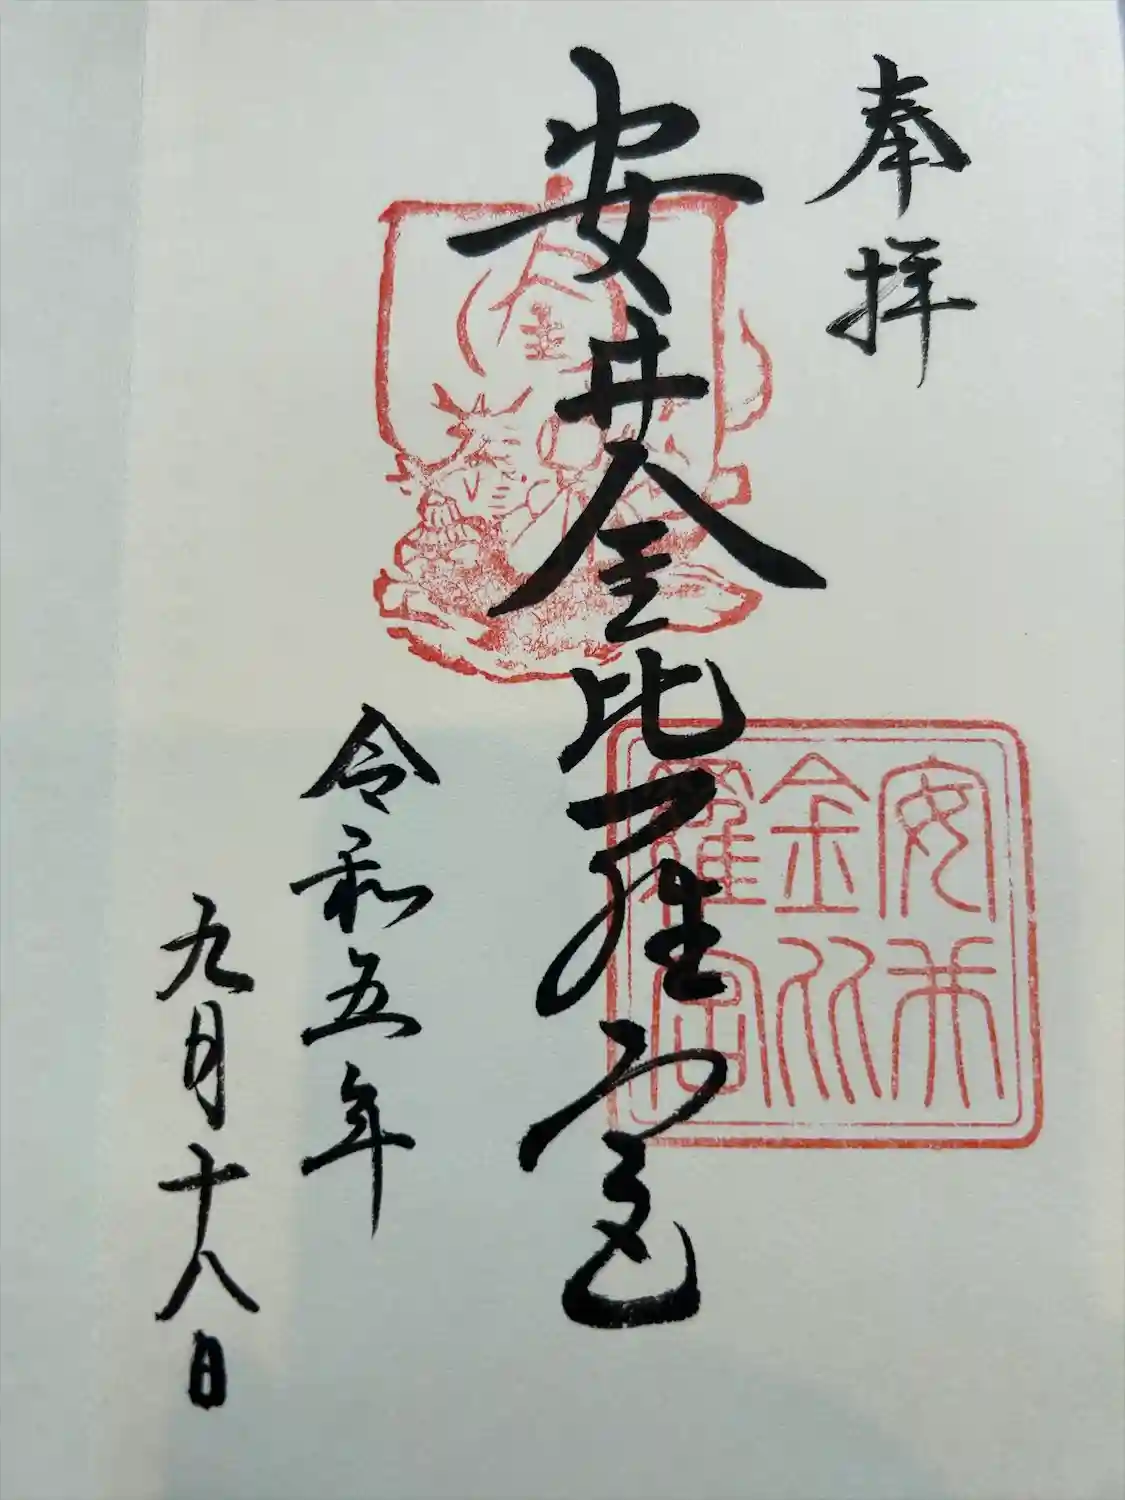 奉拝
安井金比羅宮
金
安井
金比
羅宮
令和五年
九月十八日